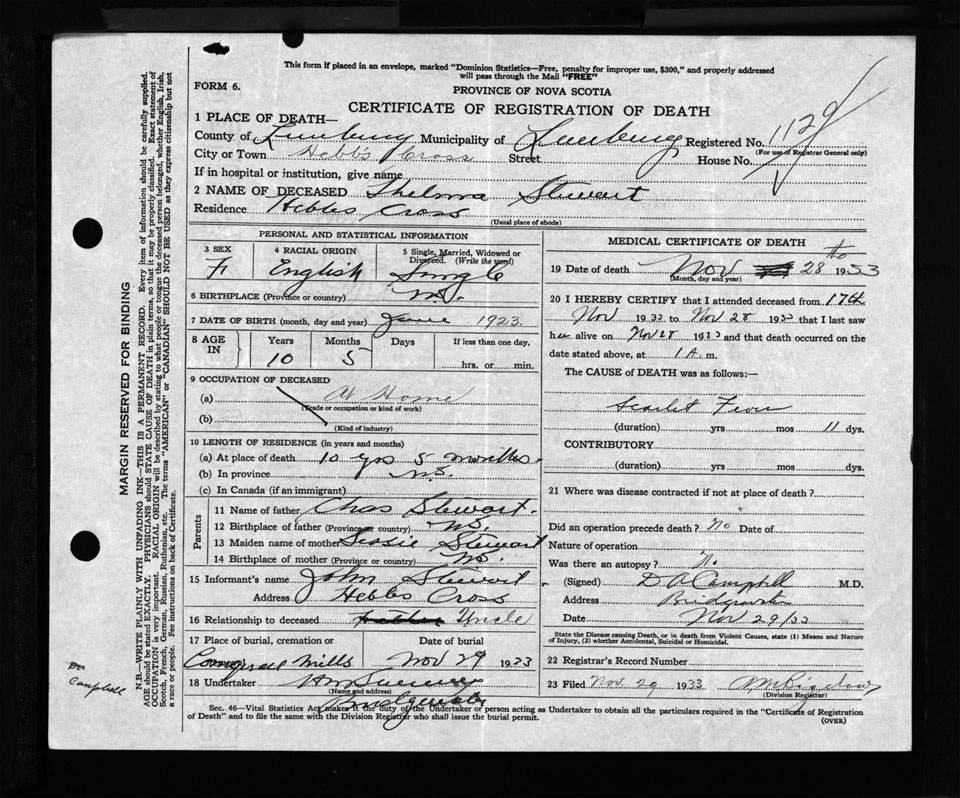 This form if placed in an envelope, marked "Dominion Statistics—Free, penalty for improper use, $300," and properly addressed
will pass through the Mail "FREE"
FORM 6.
PROVINCE OF NOVA SCOTIA
CERTIFICATE OF REGISTRATION OF DEATH
1 PLACE OF DEATH—
County of Lunenburg Municipality of Lunenburg Registered No.
(For use of Registrar General only)
City or Town Hebb's Cross Street House No.
If in hospital or institution, give name
2 NAME OF DECEASED Thelma Stewart
Residence Hebbs Cross
(Usual place of abode)
PERSONAL AND STATISTICAL INFORMATION
3 SEX 4 RACIAL ORIGIN 5 Single, Married, Widowed or
Divorced. (Write the word)
F English Single
6 BIRTHPLACE (Province or country) N.S.
7 DATE OF BIRTH (month, day and year) June 1923.
8 AGE IN Years Months Days If less than one day,
10 5 hrs. or min.
9 OCCUPATION OF DECEASED
(a) At Home
(Trade or occupation or kind of work)
(b)
(Kind of industry)
10 LENGTH OF RESIDENCE (in years and months)
(a) At place of death 10 yrs 5 months
(b) In province N.S.
(c) In Canada (if an immigrant)
Parents
11 Name of father Chas Stewart.
12 Birthplace of father (Province or country) N.S.
13 Maiden name of mother Stewart
14 Birthplace of mother (Province or country) N.S.
15 Informant's name John Stewart
Address Hebbs Cross
16 Relationship to deceased Uncle
17 Place of burial, cremation or Date of burial
Mills Nov 29 1933
18 Undertaker
(Name and address)
Bridgewater
MEDICAL CERTIFICATE OF DEATH
19 Date of death Nov 28th 1933
(Month, day and year)
20 I HEREBY CERTIFY that I attended deceased from 17th
Nov 1933 to Nov 28 1933 that I last saw
her alive on Nov 28 1933 and that death occurred on the
date stated above, at 1 A. m.
The CAUSE of DEATH was as follows:—
Scarlet Fever
(duration) yrs mos 11 dys.
CONTRIBUTORY
(duration) yrs mos dys.
21 Where was disease contracted if not at place of death?
Did an operation precede death? No Date of
Nature of operation
Was there an autopsy? No
(Signed) D A Campbell M.D.
Address Bridgewater
Date Nov 29/33
State the Disease causing Death, or in death from Violent Causes, state (1) Means and Nature
of Injury, (2) whether Accidental, Suicidal or Homicidal.
22 Registrar's Record Number
23 Filed Nov. 29 1933
(Division Registrar)
Sec. 46—Vital Statistics Act makes it the duty of the Undertaker or person acting as Undertaker to obtain all the particulars required in the "Certificate of Registration
of Death" and to file the same with the Division Registrar who shall issue the burial permit.
(OVER)
MARGIN RESERVED FOR BINDING
N.B.—WRITE PLAINLY WITH UNFADING INK—THIS IS A PERMANENT RECORD. Every item of information should be carefully supplied.
AGE should be stated EXACTLY. PHYSICIANS should STATE CAUSE OF DEATH in plain terms, so that it may be properly classified. Exact statement of
OCCUPATION is very important. RACIAL ORIGIN will be described by stating to what people or tongue the deceased person belonged, whether English, Irish,
Scotch, French, German, Russian, Ruthenian, etc. The terms "AMERICAN" or "CANADIAN" SHOULD NOT BE USED as they express citizenship but not
a race or people. See instructions on back of Certificate.
Dr
Campbell